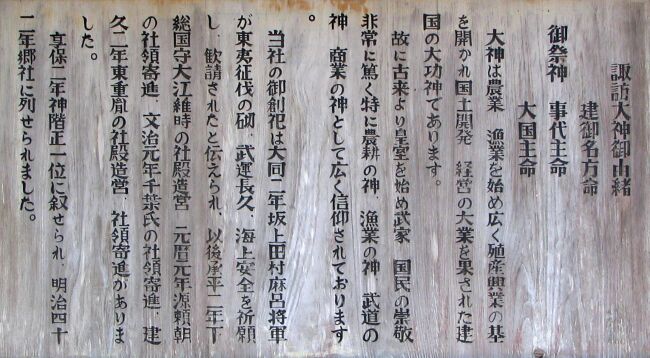 諏訪大神御由緒
建御名方命
御祭神　事代主命
大国主命
大神は農業　漁業を始め広く殖産興業の基
を開かれ国土開発　経営の大業を果された建
国の大功神であります。
故に古来より皇室を始め武家　国民の崇敬
非常に篤く特に農耕の神　漁業の神　武道の
神　商業の神として広く信仰されております
。
当社の御創祀は大同二年坂上田村麻呂将軍
が東夷征伐の砌、武運長久、海上安全を祈願
し、歓請されたと伝えられ、以後承平二年下
総国守大江維時の社殿造営　元暦元年源頼朝
の社領寄進、文治元年千葉氏の社領寄進、建
久二年東重胤の社殿造営、社領寄進がありま
した。
享保二年神階正一位に叙せられ、明治四十
二年郷社に列せられました。